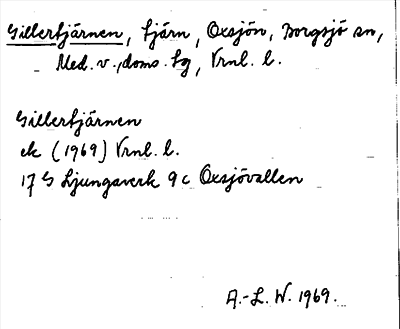 Gillertjärnen, tjärn, Oxsjön, Borgsjö sn,
Med. v., doms. tg, Vrnl. l.
Gillertjärnen
ek (1969) Vrnl. l.
17 G Ljungaverk 9 c Oxsjövallen
A.-L. W. 1969.